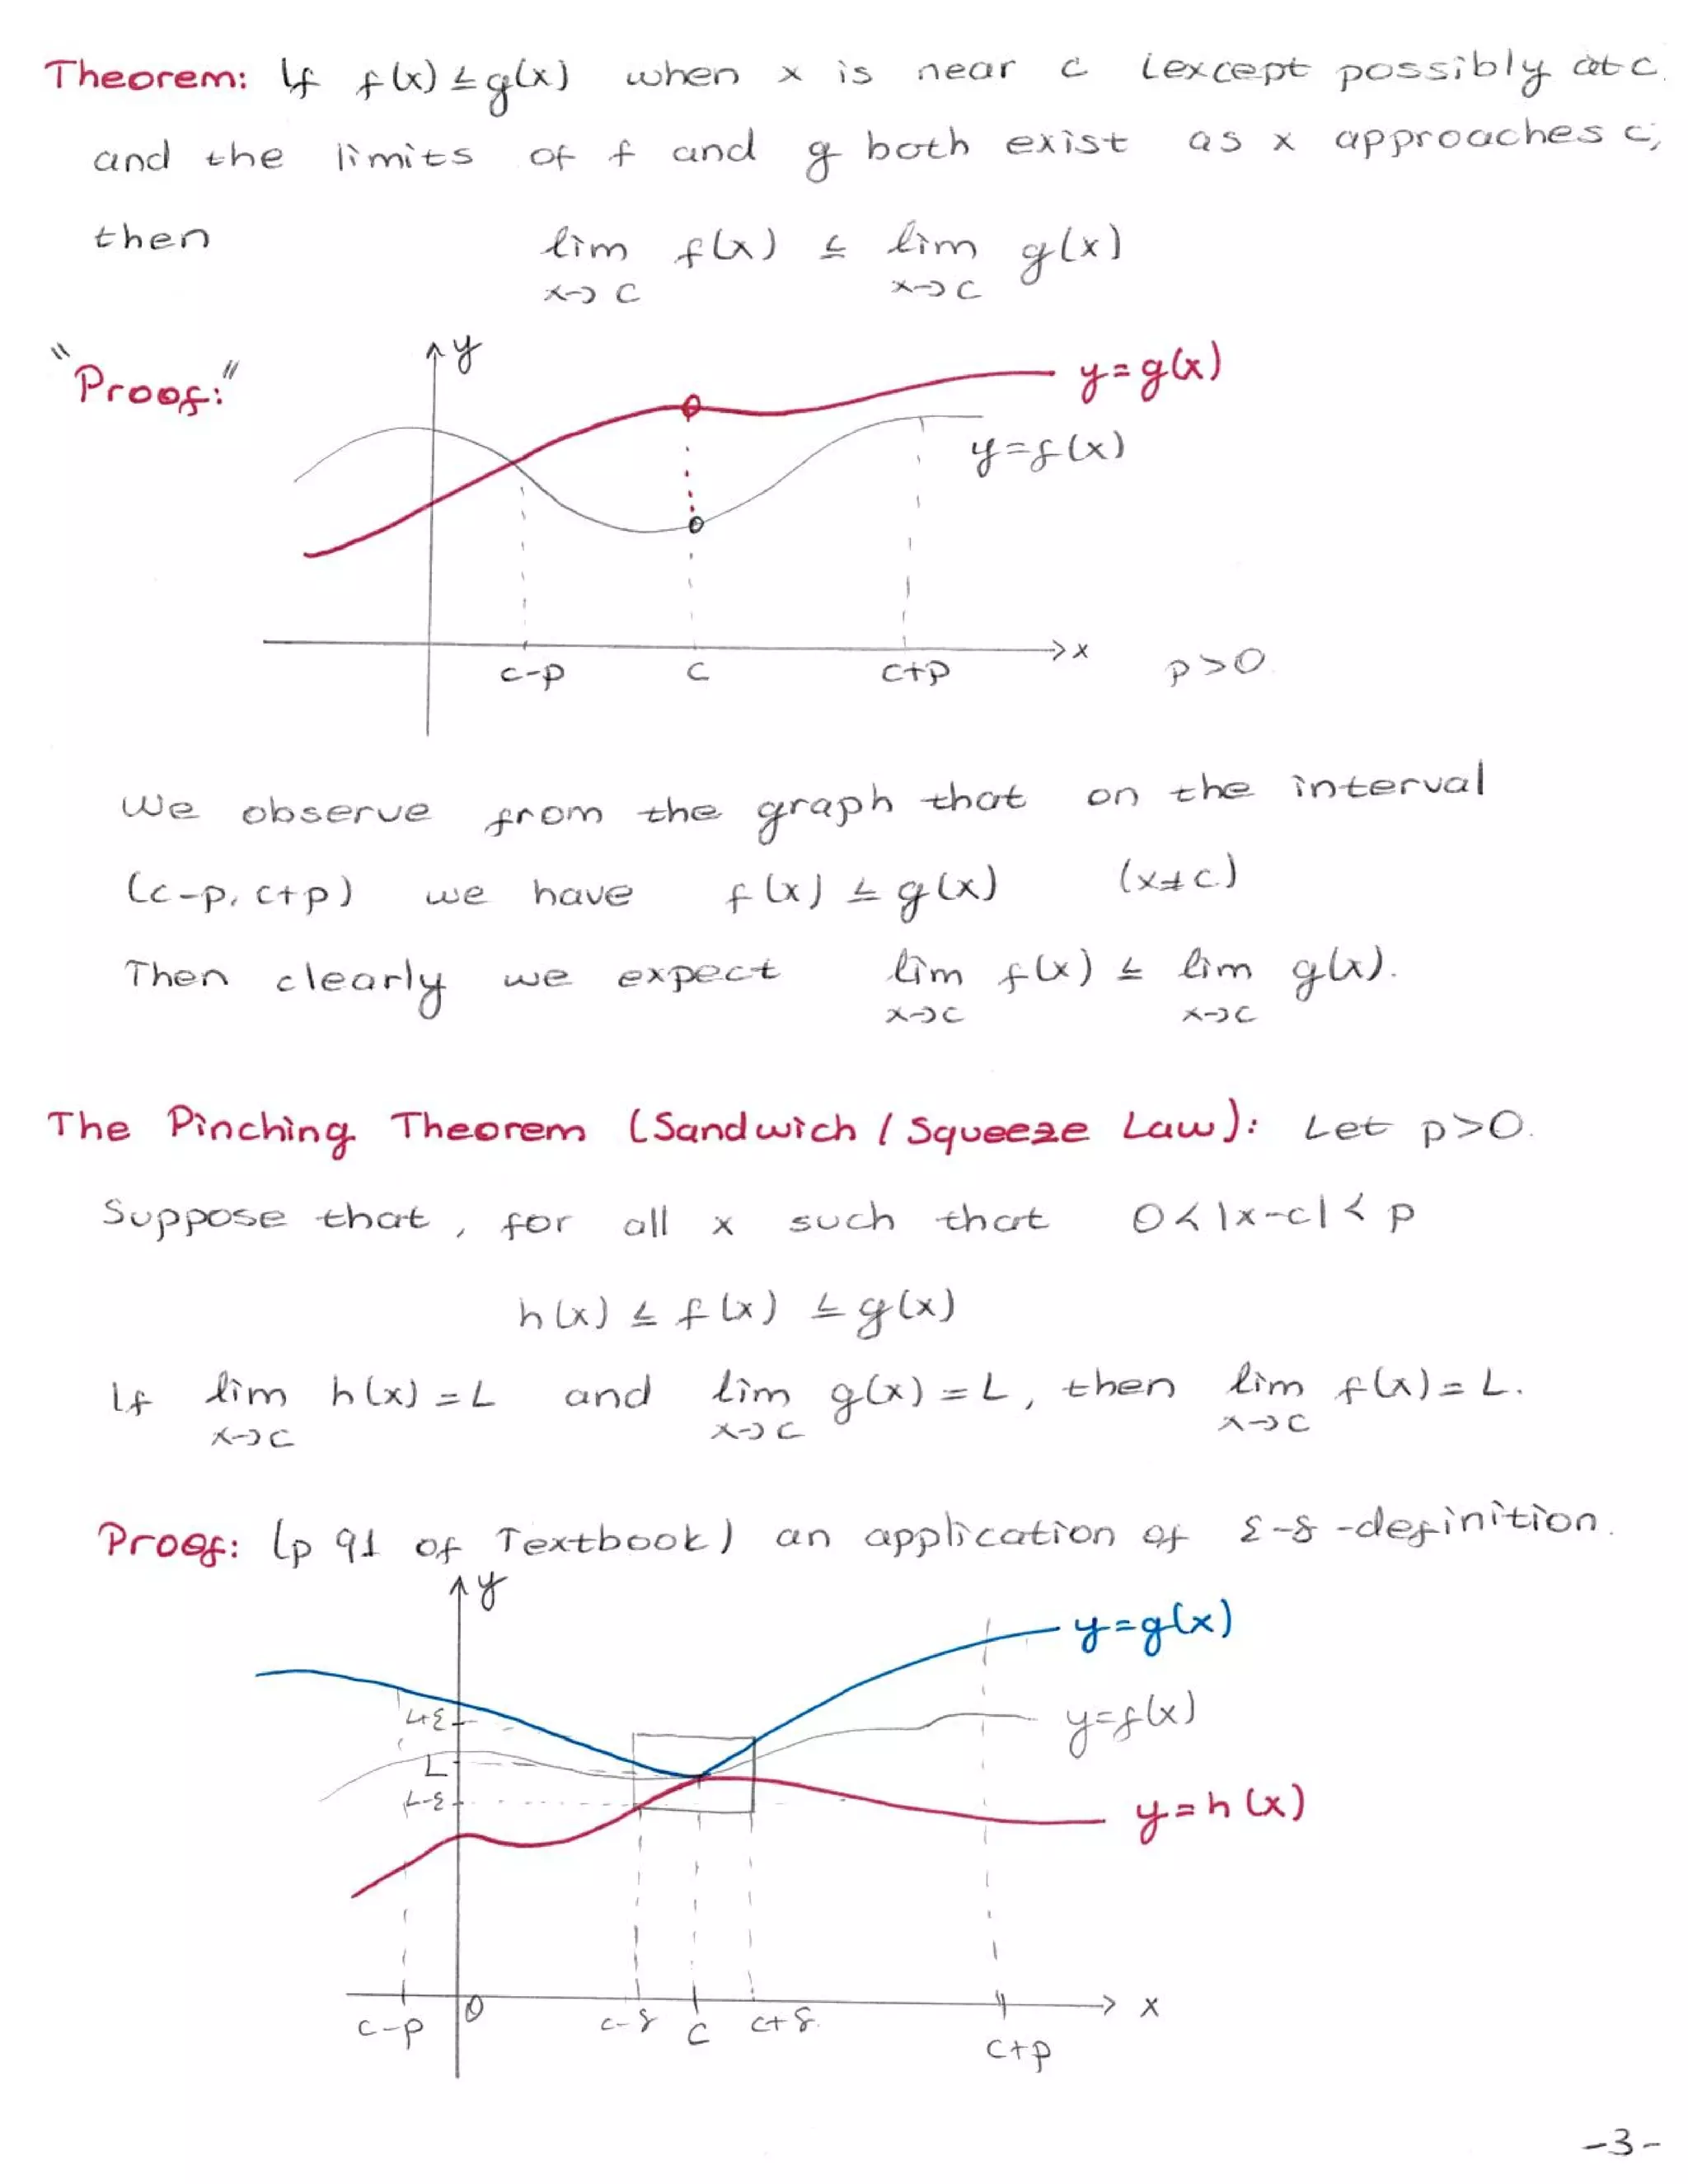 Theorem: If f(x) ≤ g(x) when x is near c (except possibly at c
and the limits of f and g both exist as x approaches c,
then lim f(x) ≤ lim g(x)
x→c x→c
"Proof:"
y
y=g(x)
y=f(x)
x
c-p c c+p p>0.
We observe from the graph that on the interval
(c-p, c+p) we have f(x) ≤ g(x) (x≠c)
Then clearly we expect lim f(x) ≤ lim g(x).
x→c x→c
The Pinching Theorem (Sandwich / Squeeze Law): Let p>0.
Suppose that, for all x such that 0<|x-c|<p
h(x) ≤ f(x) ≤ g(x)
If lim h(x) = L and lim g(x) = L, then lim f(x) = L.
x→c x→c x→c
Proof: (p 91 of Textbook) an application of ε-δ-definition.
y
y=g(x)
L+ε
y=f(x)
L
L-ε
y=h(x)
0
x
c-p c-δ c c+δ. c+p
-3-